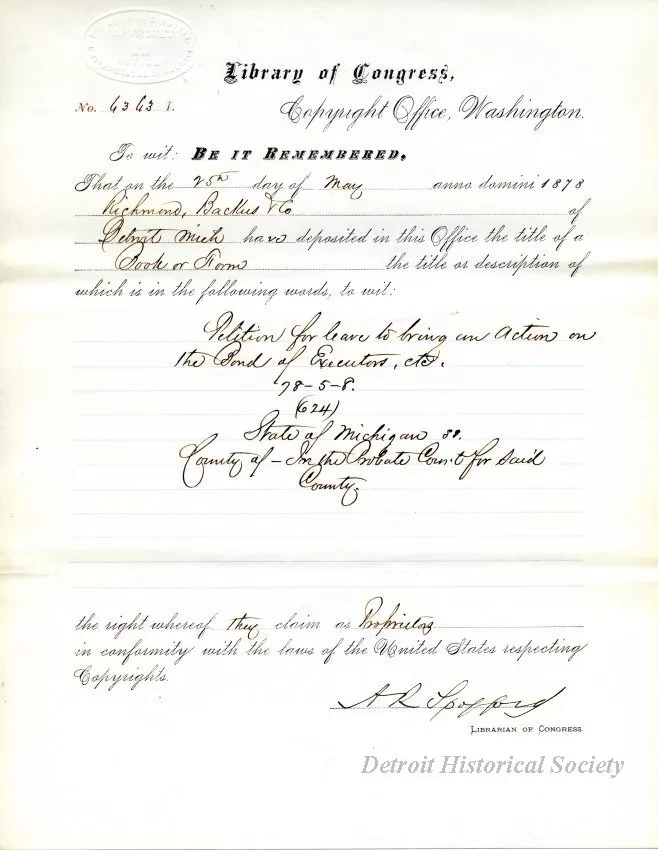 Library of Congress,
No. 6363 I. Copyright Office, Washington.
To wit: BE IT REMEMBERED,
That on the 25th day of May anno domini 1878
Richmond, Backus & Co of
Detroit Mich have deposited in this Office the title of a
Book or Form the title or description of
which is in the following words, to wit:
Petition for leave to bring an Action on
the Bond of Executors, etc.
78-5-8.
(624)
State of Michigan ss.
County of - In the Probate Court for said
County.
the right whereof they claim as Proprietors
in conformity with the laws of the United States respecting
Copyrights.
A R Spofford
LIBRARIAN OF CONGRESS
Detroit Historical Society